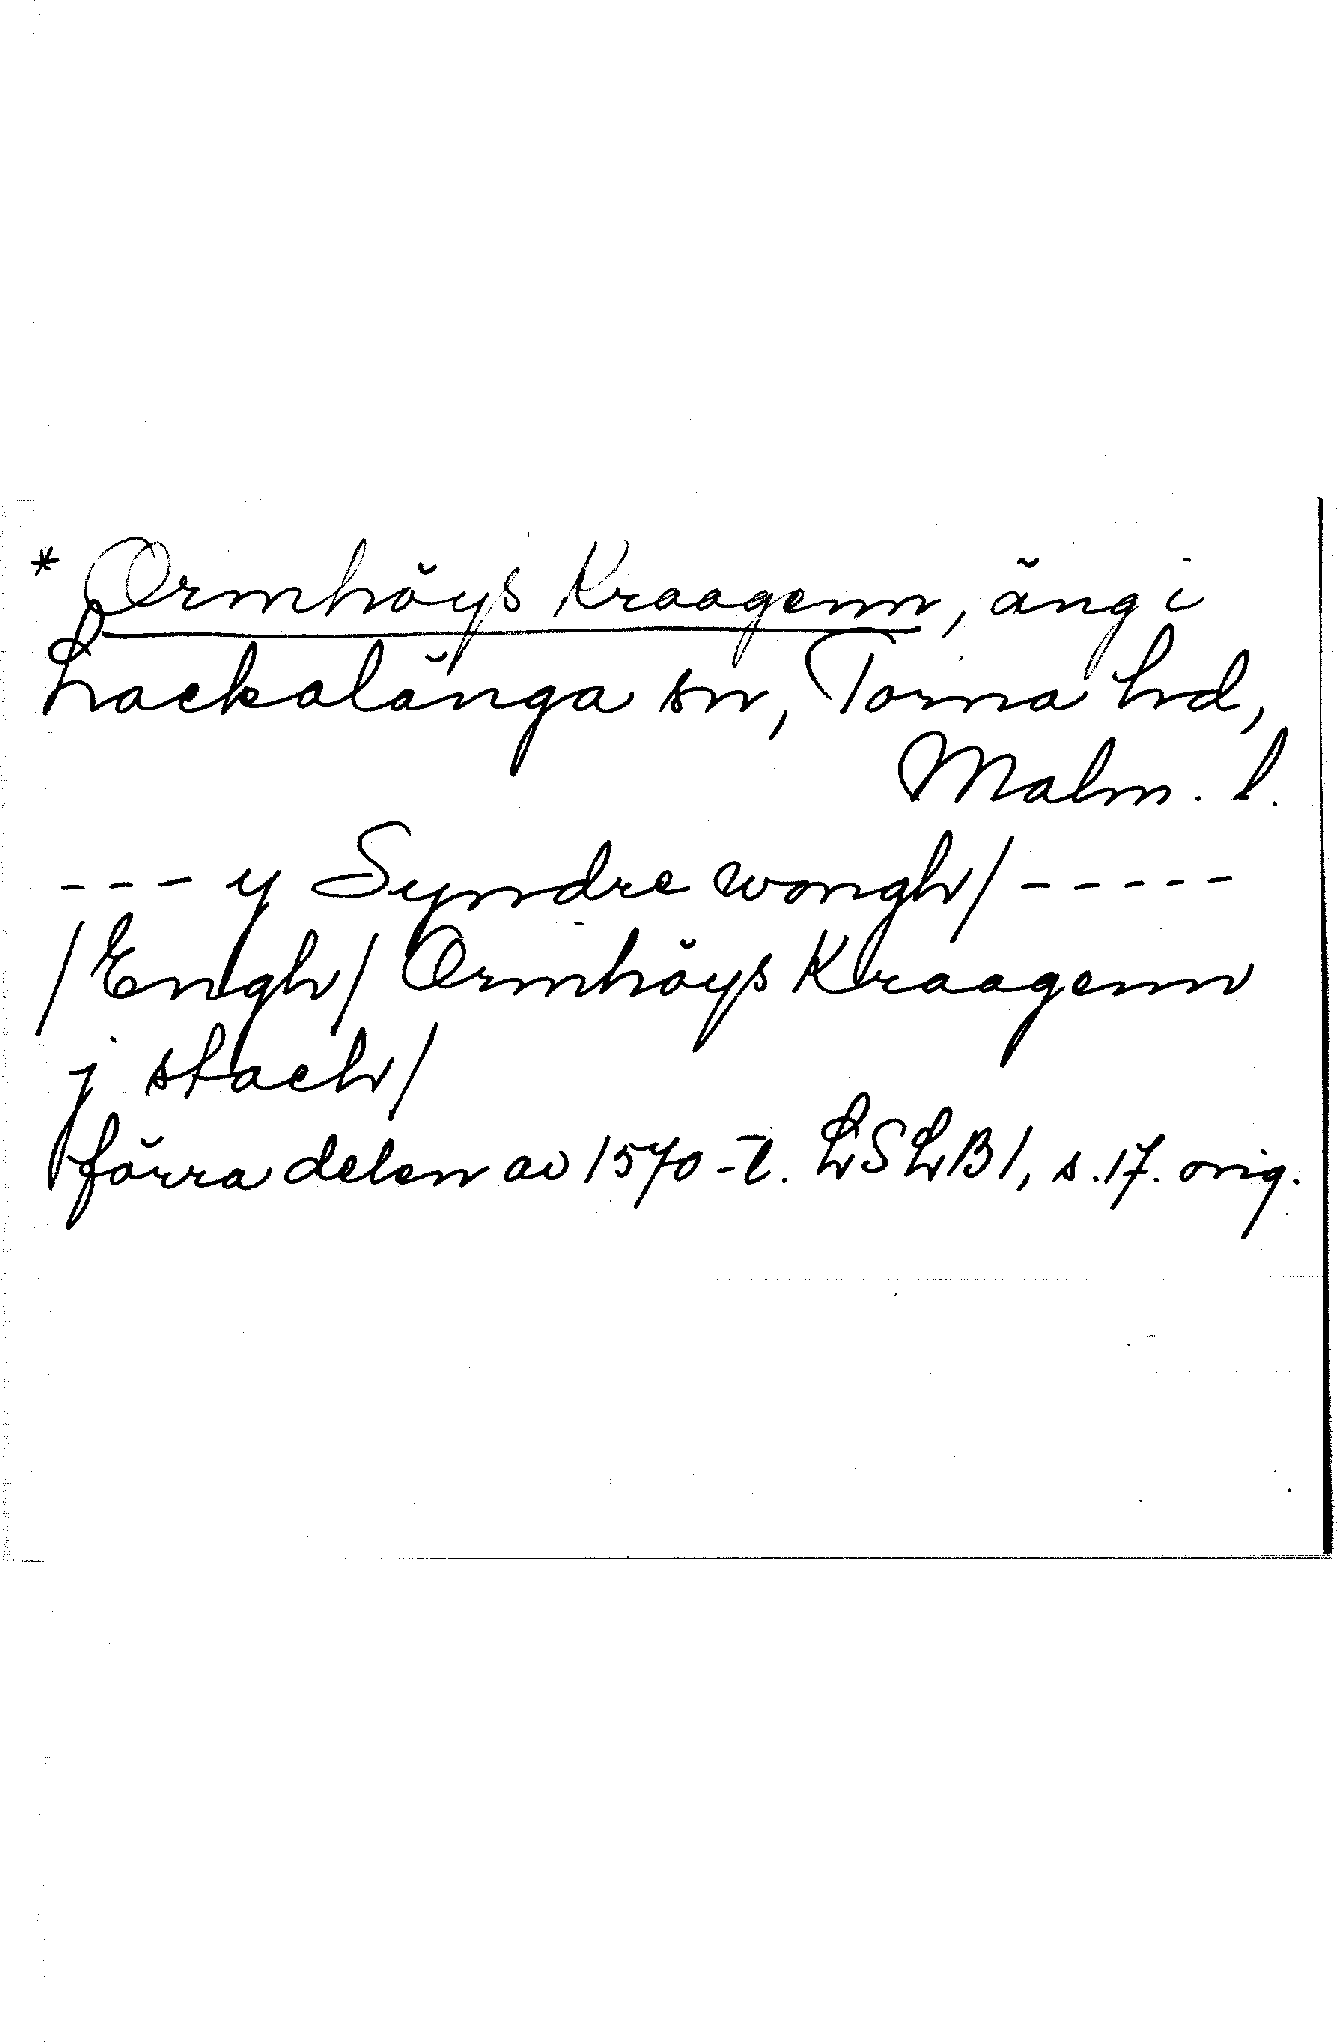 * Ormhöys Kraagenn, äng i
Lackalänga sn, Torna hd,
Malm. l.
--- y Syndre wongh/ -----
/Engh/ Ormhöys Kraagenn
j stach/
förra delen av 1570-t. LSLB1, s.17. orig.